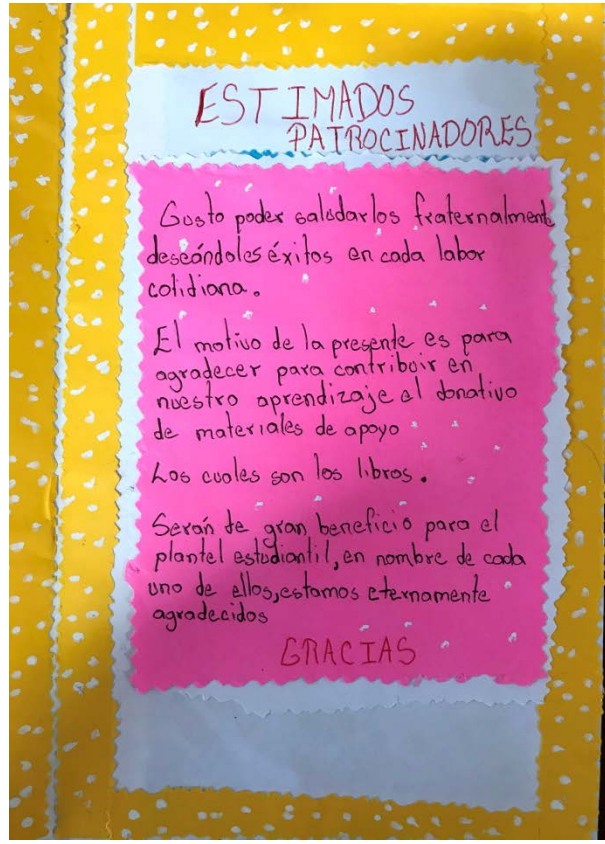 ESTIMADOS
PATROCINADORES
Gusto poder saludarlos fraternalmente
deseándoles éxitos en cada labor
cotidiana.
El motivo de la presente es para
agradecer para contribuir en
nuestro aprendizaje el donativo
de materiales de apoyo
Los cuales son los libros.
Serán de gran beneficio para el
plantel estudiantil, en nombre de cada
uno de ellos, estamos eternamente
agradecidos
GRACIAS